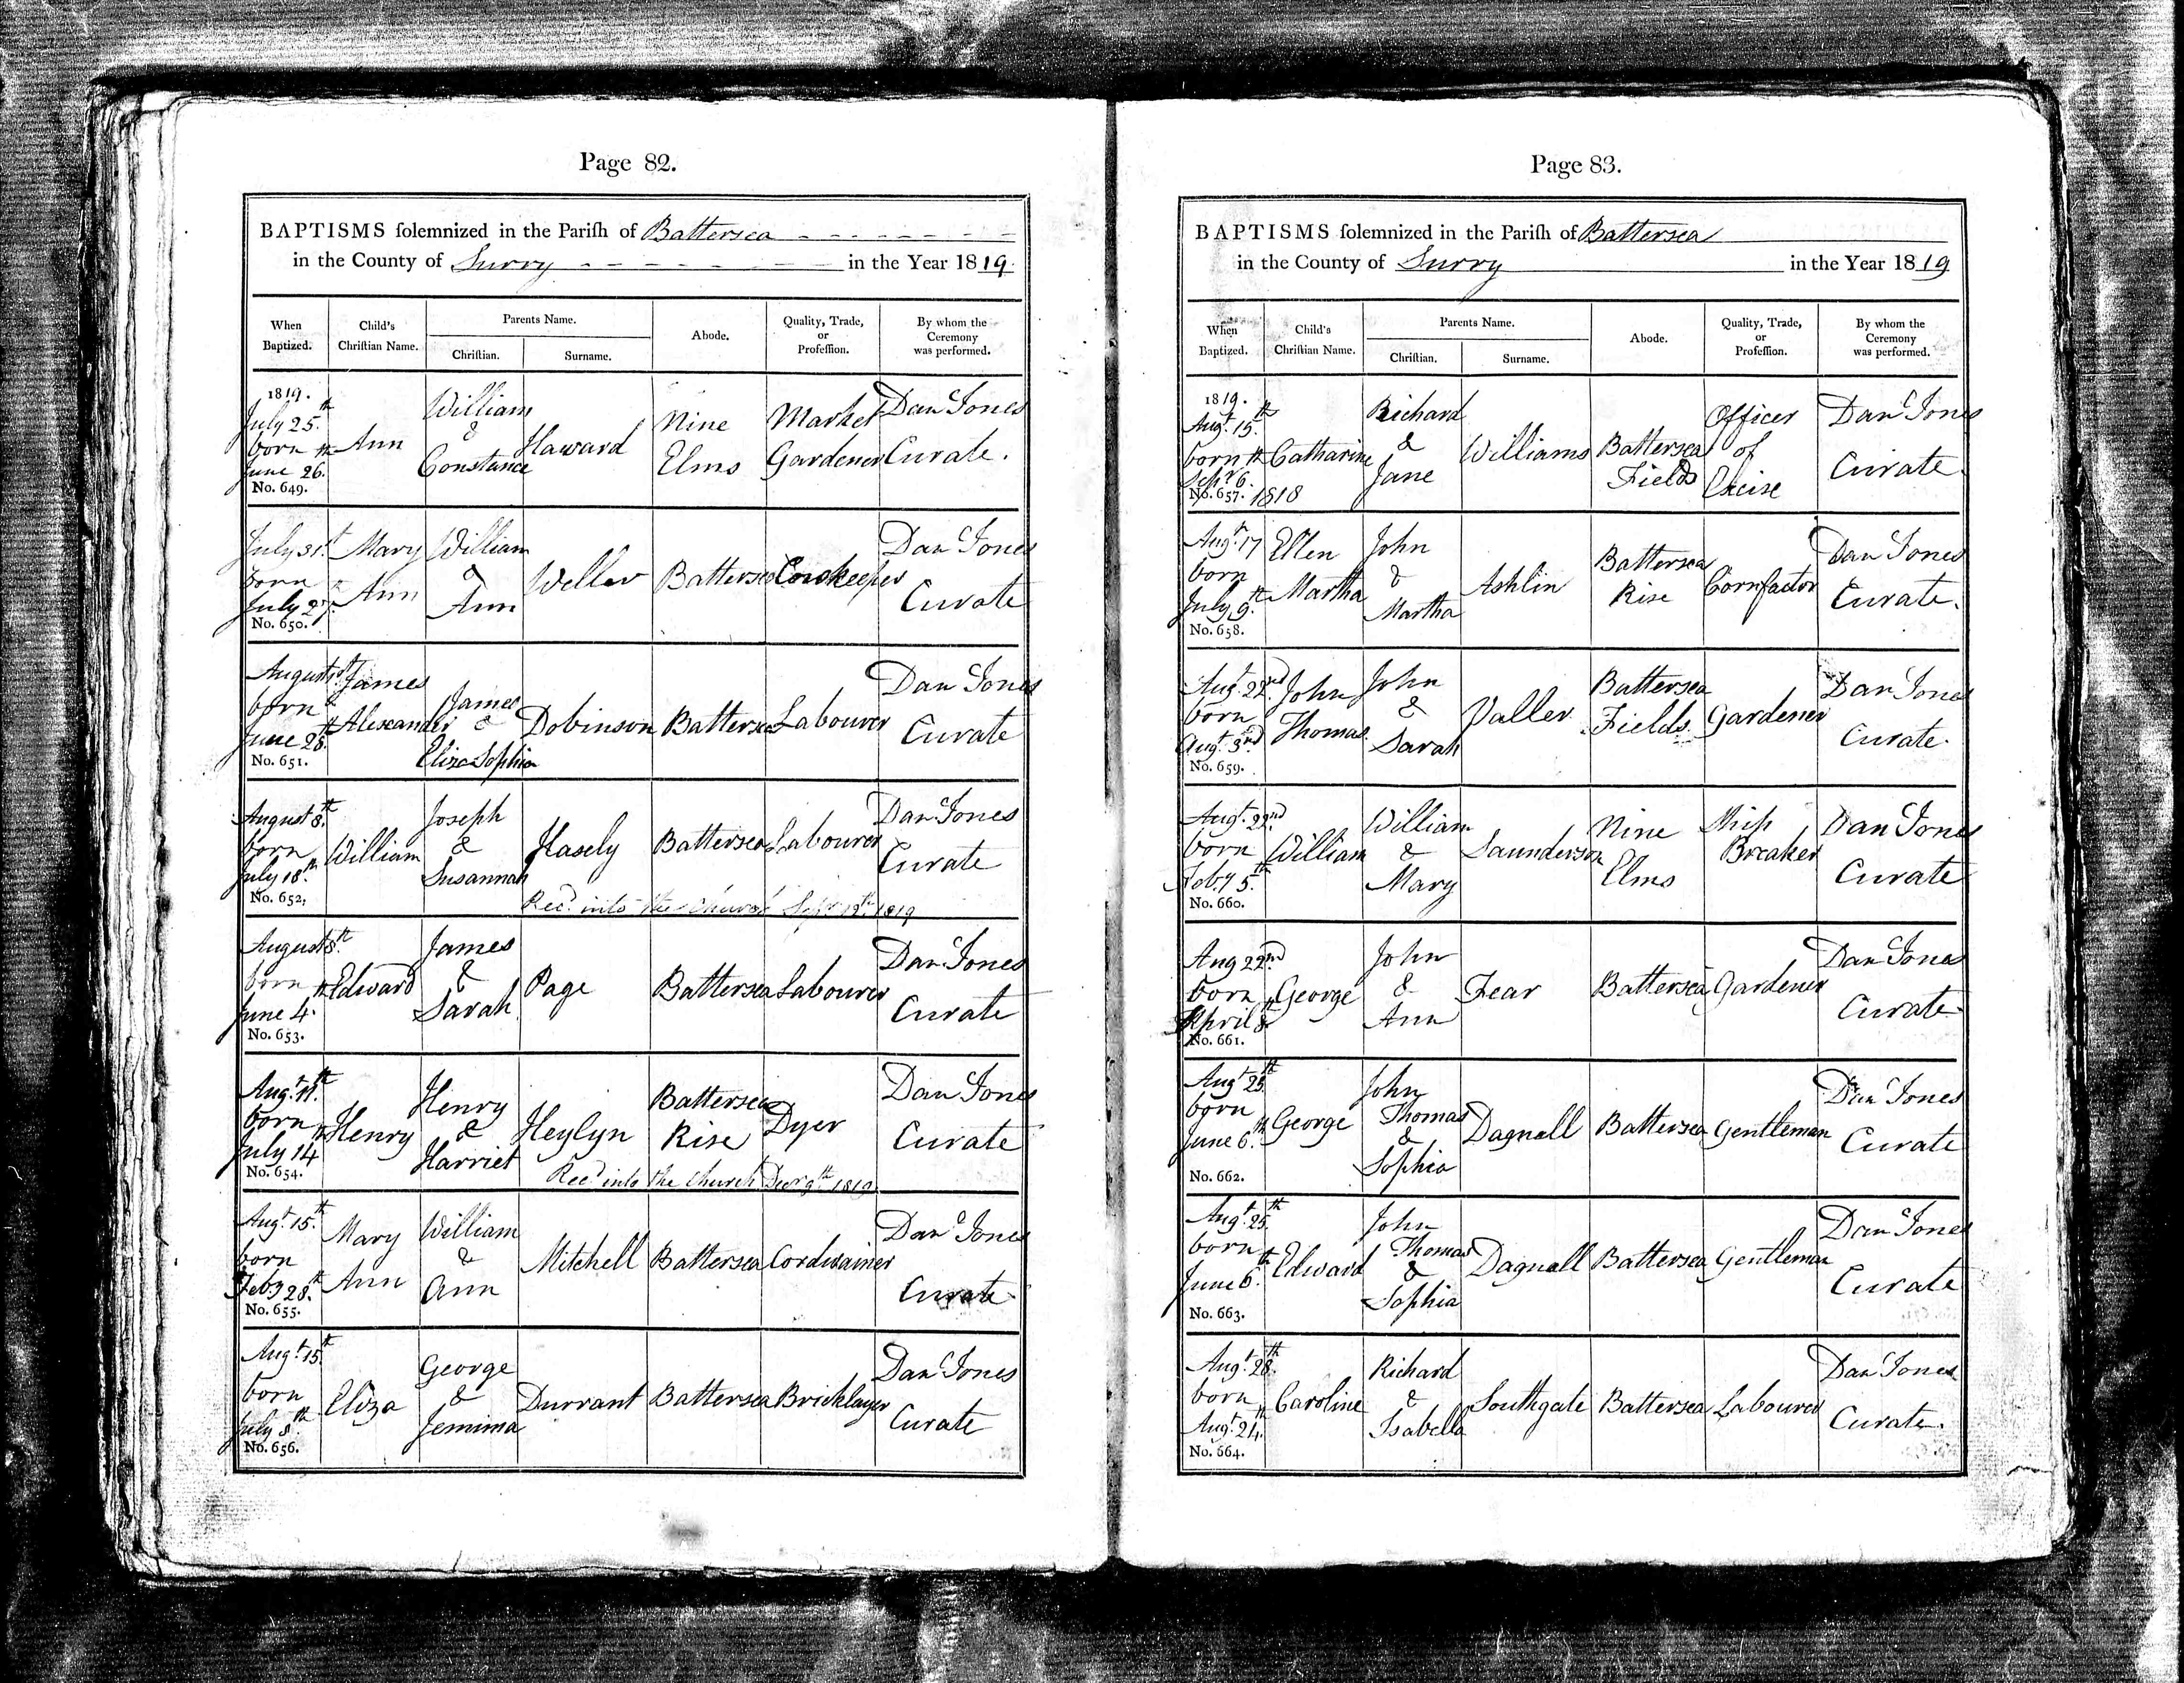 Page 82.
BAPTISMS solemnized in the Parish of Battersea
in the County of Surry in the Year 1819.
When Baptized.
Child's Christian Name.
Parents Name.
Christian.
Surname.
Abode.
Quality, Trade, or Profession.
By whom the Ceremony was performed.
1819.
July 25th
born
June 26th
No. 649.
Ann
William
&
Constance
Haward
Nine
Elms
Market
Gardener
Danl Jones
Curate.
July 31st
born
July 27th
No. 650.
Mary
Ann
William
&
Ann
Weller
Battersea
Cowkeeper
Danl Jones
Curate
August 1st
born
June 28th
No. 651.
James
Alexander
James
&
Eliza Sophia
Dobinson
Battersea
Labourer
Danl Jones
Curate
August 8th
born
July 18th
No. 652.
William
Joseph
&
Susannah
Hasely
Battersea
Labourer
Danl Jones
Curate
Recd into the church Sepr 19th 1819
August 8th
born
June 4th
No. 653.
Edward
James
&
Sarah
Page
Battersea
Labourer
Danl Jones
Curate
Augt 11th
born
July 14th
No. 654.
Henry
Henry
&
Harriet
Heylyn
Battersea
Rise
Dyer
Danl Jones
Curate
Recd into the Church Decr 9th 1819
Augt 15th
born
Feby 28th
No. 655.
Mary
Ann
William
&
Ann
Mitchell
Battersea
Cordwainer
Danl Jones
Curate
Augt 15th
born
July 8th
No. 656.
Eliza
George
&
Jemima
Durrant
Battersea
Bricklayer
Danl Jones
Curate
Page 83.
BAPTISMS solemnized in the Parish of Battersea
in the County of Surry in the Year 1819
When Baptized.
Child's Christian Name.
Parents Name.
Christian.
Surname.
Abode.
Quality, Trade, or Profession.
By whom the Ceremony was performed.
1819.
Augt 15th
born
Sepr 6th
No. 657. 1818
Catharine
Richard
&
Jane
Williams
Battersea
Fields
Officer
of
Excise
Danl Jones
Curate.
Augt 17
born
July 9th
No. 658.
Ellen
Martha
John
&
Martha
Ashlin
Battersea
Rise
Cornfactor
Danl Jones
Curate.
Augt 22nd
born
Augt 3rd
No. 659.
John
Thomas
John
&
Sarah
Valler
Battersea
Fields
Gardener
Danl Jones
Curate.
Augt 22nd
born
Feby 5th
No. 660.
William
William
&
Mary
Saunderson
Nine
Elms
Ship
Breaker
Danl Jones
Curate
Aug 22nd
born
April 8th
No. 661.
George
John
&
Ann
Fear
Battersea
Gardener
Danl Jones
Curate
Augt 25th
born
June 6th
No. 662.
George
John
Thomas
&
Sophia
Dagnall
Battersea
Gentleman
Danl Jones
Curate
Augt 25th
born
June 6th
No. 663.
Edward
John
Thomas
&
Sophia
Dagnall
Battersea
Gentleman
Danl Jones
Curate
Augt 28th
born
Augt 24th
No. 664.
Caroline
Richard
&
Isabella
Southgate
Battersea
Labourer
Danl Jones
Curate.